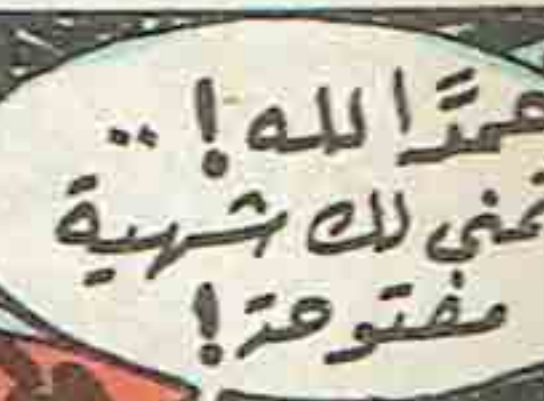 حمدًا لله! ..
تمنى لك شهية
مفتوحة!